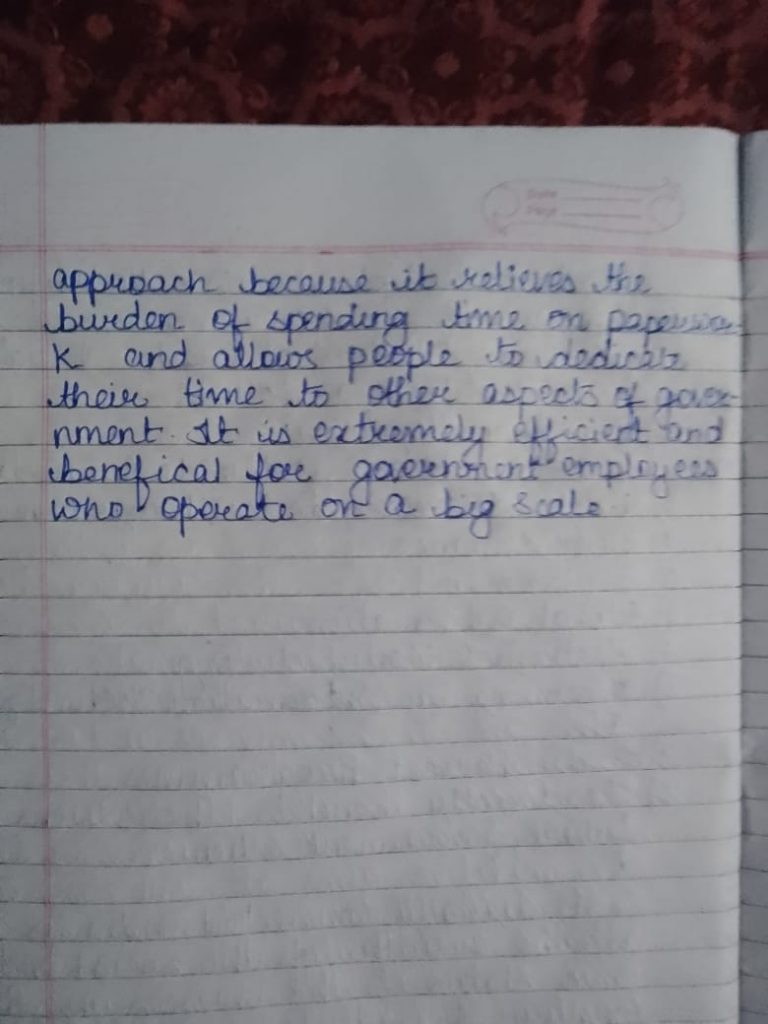 Date
Page
approach because it relieves the
burden of spending time on paperwor-
k and allows people to dedicate
their time to other aspects of gover-
nment. It is extremely efficient and
benefical for government employees
who operate on a big scale